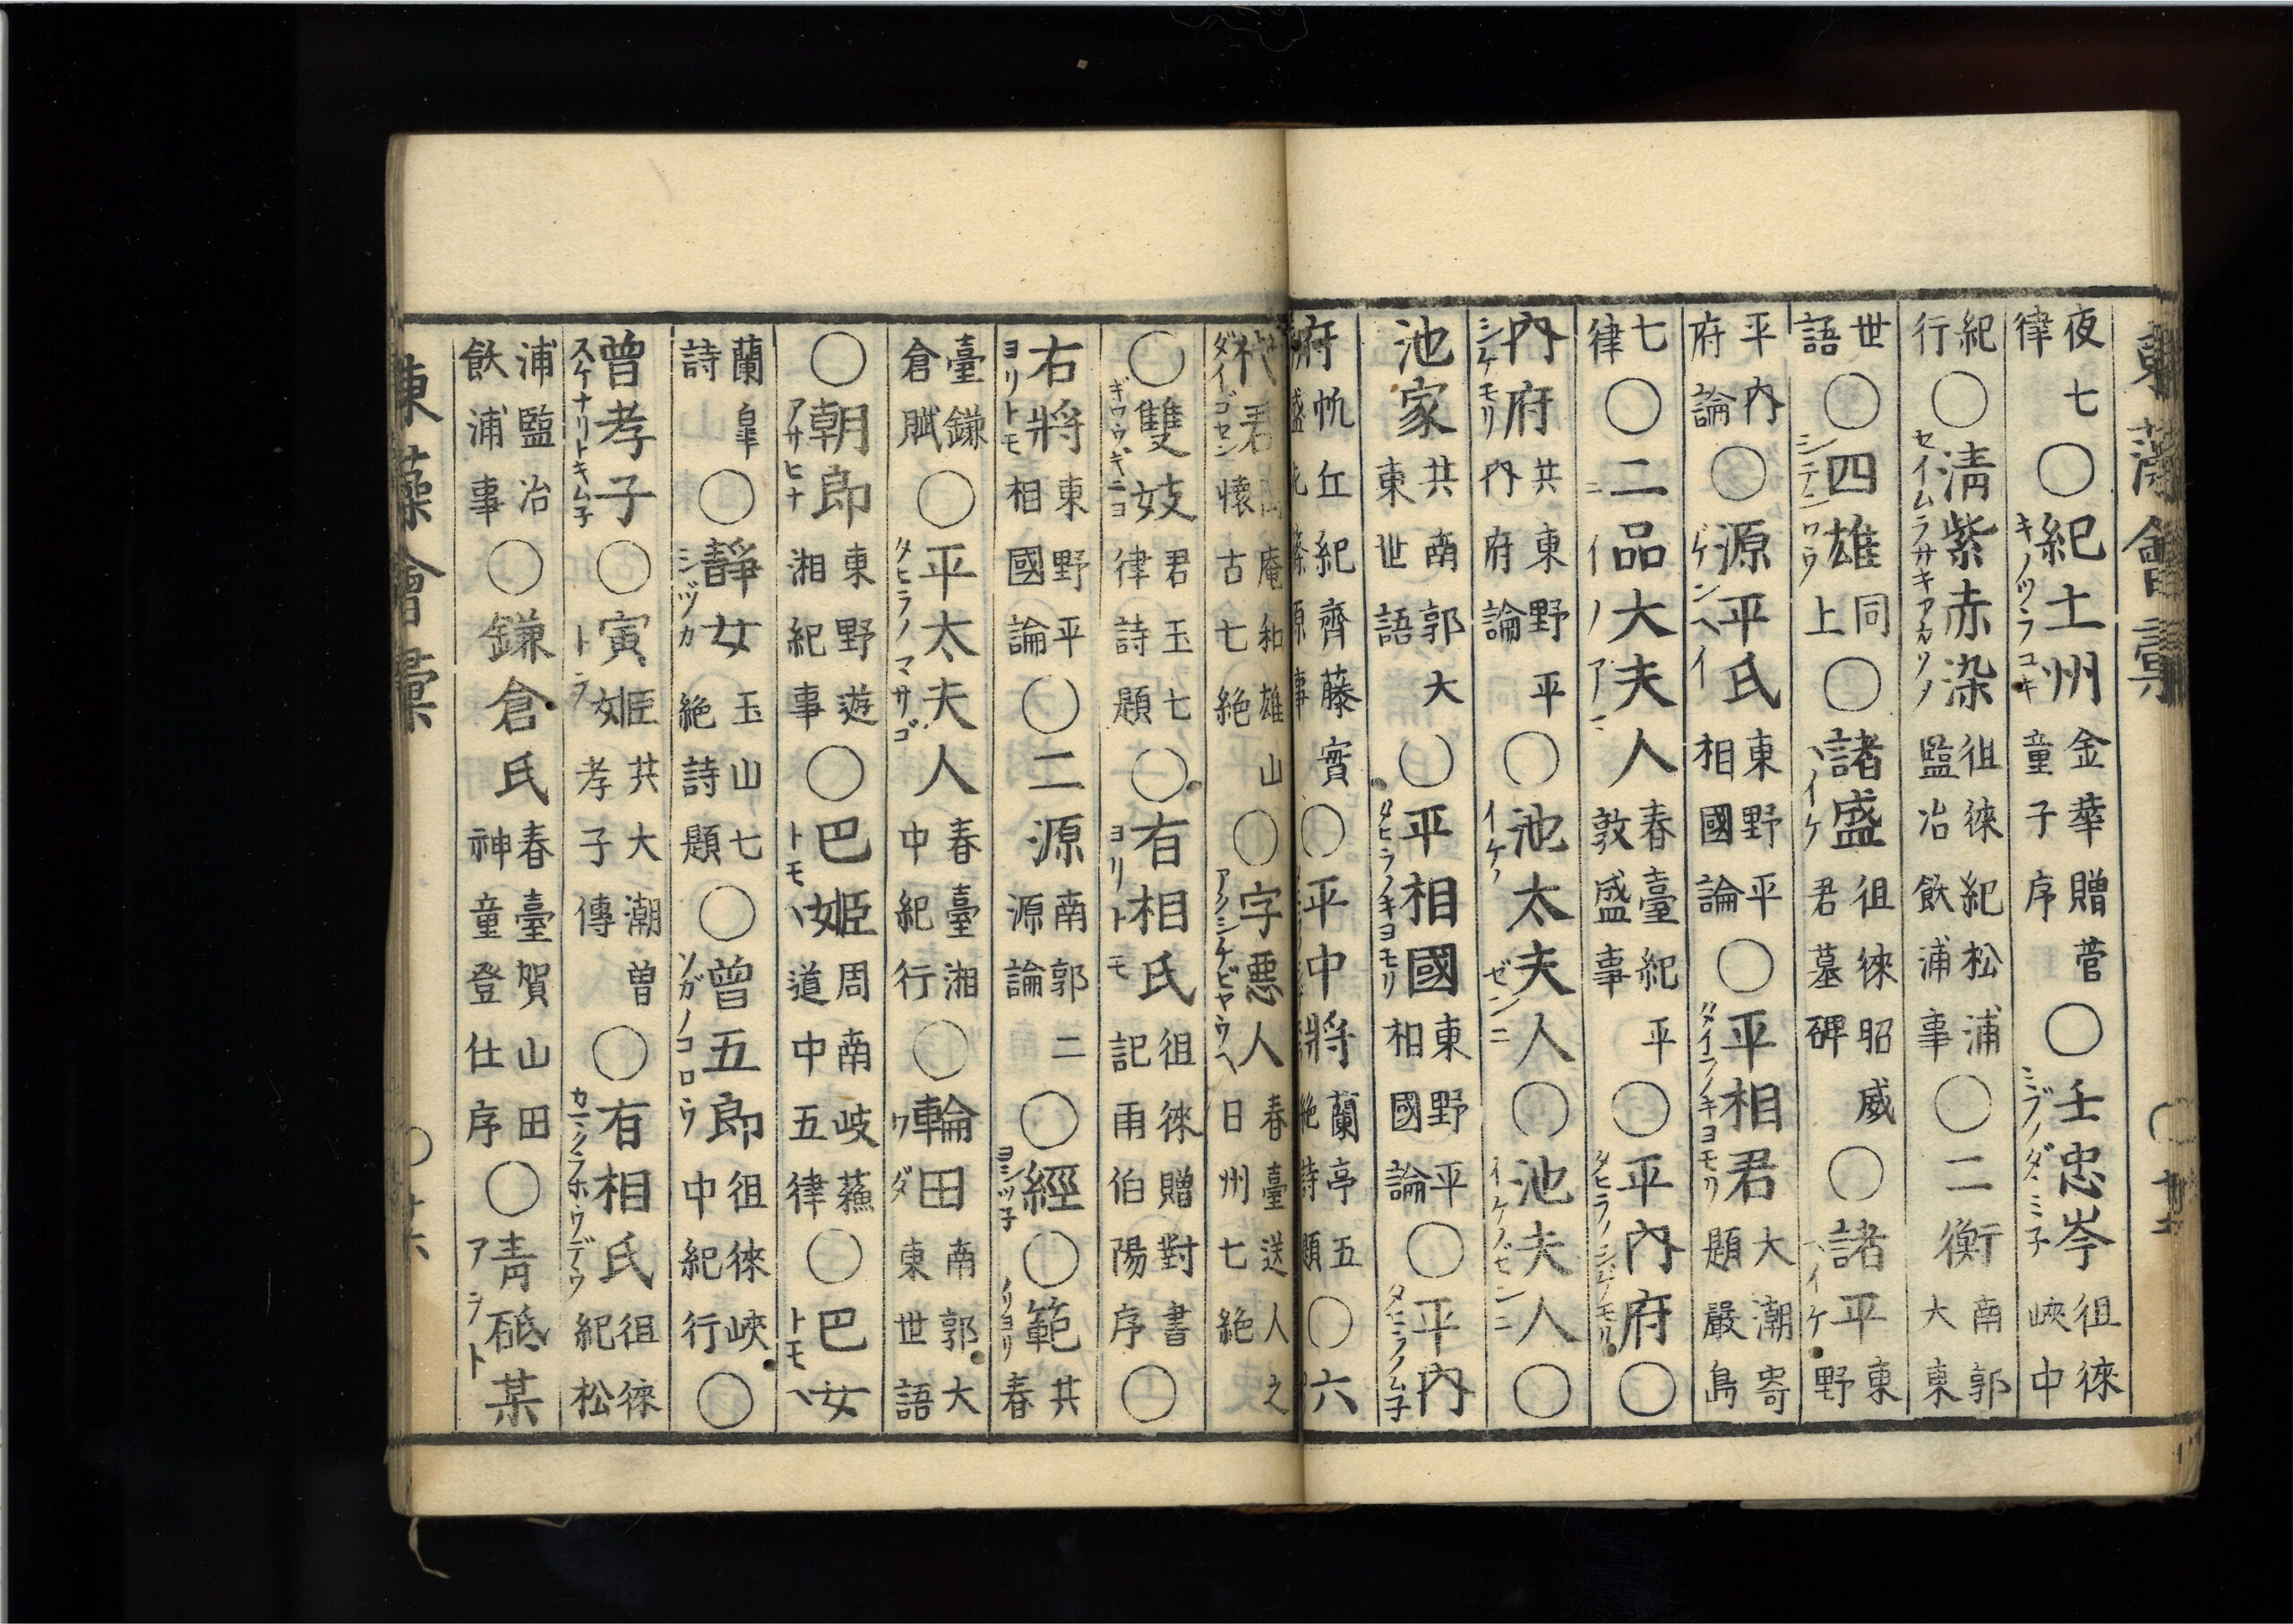 東藻會彙
夜七律○紀土州 キノツラユキ 金華贈菅童子序○壬忠岑 ミブノダミ子 徂徠峽中
紀行○淸紫赤染 セイムラサキアカソメ 徂徠紀松浦監冶飮浦事○二衡 南郭大東
世語○四雄 シテンワウ 同上○諸盛 ヘイケ 徂徠昭威君墓碑○諸平 ヘイケ 東野
平內府論○源平氏 ゲンヘイ 東野平相國論○平相君 タイラノキヨモリ 大潮寄題嚴島
七律○二品大夫人 ニイノアマ 春臺紀平敦盛事○平內府 タヒラノシゲモリ ○
內府 シケモリ 共東野平內府論○池太夫人 イケノゼンニ ○池夫人 イケノゼンニ ○
池家 共南郭大東世語○平相國 タヒラノキヨモリ 東野平相國論○平內 タヒラノム子
府 帆丘紀齊藤實盛 ○平中將 蘭亭五絶詩題○六
代君 ダイゴゼン 庵和雄山懷古七絶○字惡人 アクシチビヤウヘ 春臺送人之日州七絶
○雙妓 ギワウギニヨ 君玉七律詩題○有相氏 ヨリトモ 徂徠贈對書記雨伯陽序○
右將 ヨリトモ 東野平相國論○二源 南郭二源論○經 ヨシツ子 ○範 ノリヨリ 共春
臺鎌倉賦○平太夫人 タヒラノマサゴ 春臺湘中紀行○輪田 ワダ 南郭大東世語
○朝郎 アサヒナ 東野遊湘紀事○巴姬 トモヘ 周南岐蘓道中五律○巴女 トモヘ
蘭皐詩○靜女 シヅカ 玉山七絶詩題○曽五郎 ソガノゴロウ 徂徠峽中紀行○
曽孝子 スケナリトキム子 ○寅姬 トラ 共大潮曽孝子傳○有相氏 カマクラホウデウ 徂徠紀松
浦監冶飮浦事○鎌倉氏 春臺賀山田神童登仕序○靑砥某 アヲト
東藻會彙